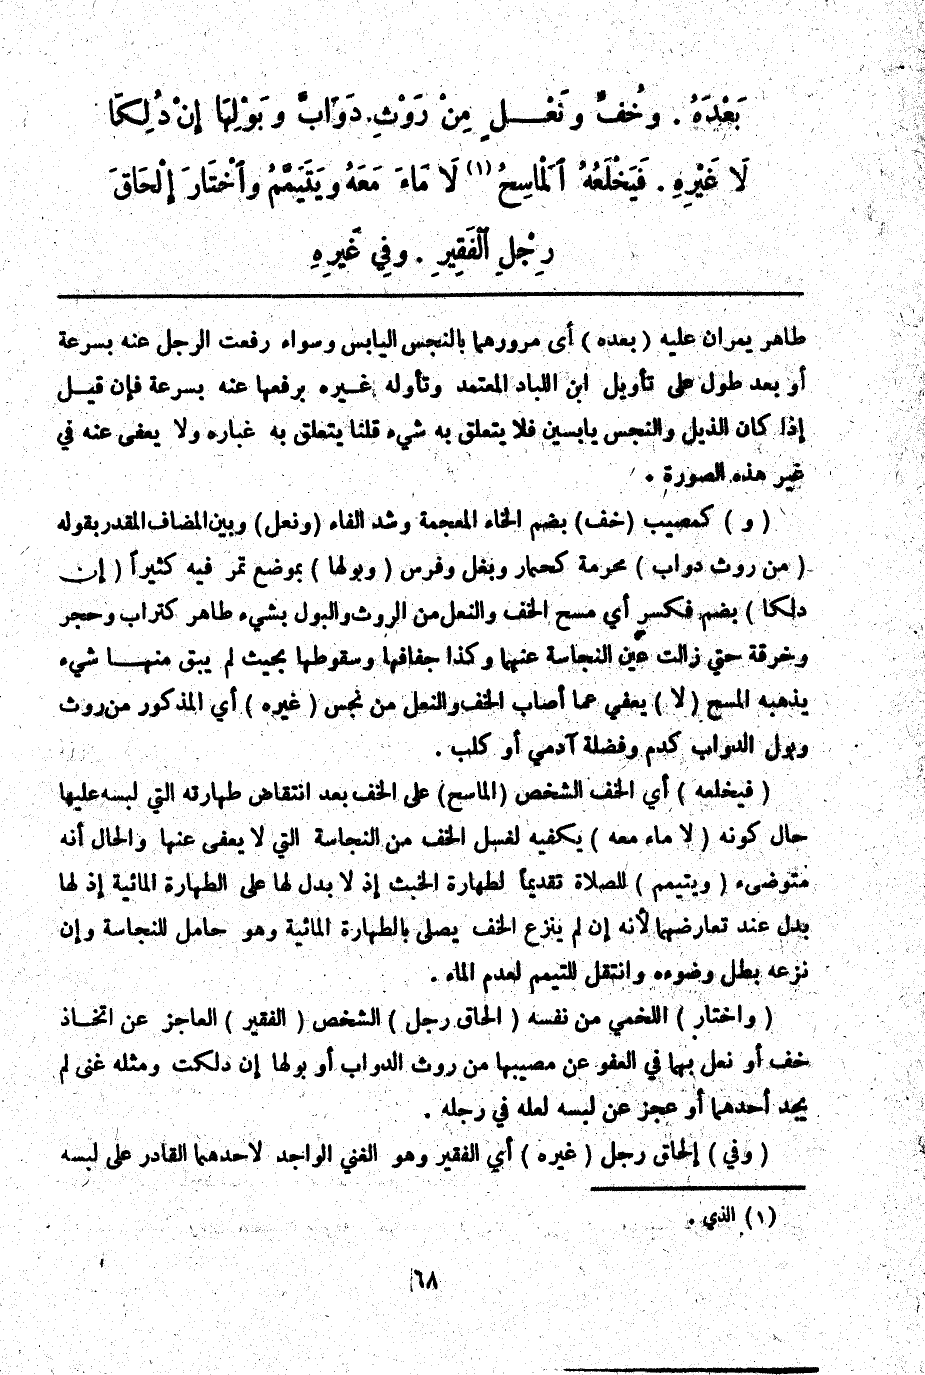 بَعْدَهُ . وخُفٌّ ونَعْــلٍ مِنْ رَوْثِ دَوَابَّ وبَوْلِهَا إِنْ دُلِكَا
لَا غَيْرِهِ . فَيَخْلَعُهُ ٱلْمَاسِحُ (١) لَا مَاءَ مَعَهُ ويَتَيَمَّمُ وٱخْتَارَ إِلْحَاقَ
رِجْلِ ٱلْفَقِيرِ . وفِي غَيرِهِ
طاهر يمران عليه ( بعده ) أى مرورهما بالنجس اليابس وسواء رفعت الرجل عنه بسرعة
أو بعد طول على تأويل ابن اللباد المعتمد وتأوله غــيره برفعها عنه بسرعة فإن قيــل
إذا كان الذيل والنجس يابسين فلا يتعلق به شيء قلنا يتعلق به غباره ولا يعفى عنه في
غير هذه الصورة .
( و ) كمصيب (خف) بضم الخاء المعجمة وشد الفاء (ونعل) وبين المضاف المقدر بقوله
( من روث دواب ) محرمة كحمار وبغل وفرس ( وبولها ) بموضع تمر فيه كثيراً ( إن
دلكا ) بضم فكسر أي مسح الخف والنعل من الروث والبول بشيء طاهر كتراب وحجر
وخرقة حتي زالت عين النجاسة عنهما وكذا جفافها وسقوطها بحيث لم يبق منهــــا شيء
يذهبه المسح ( لا ) يعفي عما أصاب الخف والنعل من نجس ( غيره ) أي المذكور من روث
وبول الدواب كدم وفضلة آدمي أو كلب .
( فيخلعه ) أي الخف الشخص (الماسح) على الخف بعد انتقاض طهارته التي لبسه عليها
حال كونه ( لا ماء معه ) يكفيه لغسل الخف من النجاسة التي لا يعفى عنها والحال أنه
متوضىء ( ويتيمم ) للصلاة تقديماً لطهارة الخبث إذ لا بدل لها على الطهارة المائية إذ لها
بدل عند تعارضهما لأنه إن لم ينزع الخف يصلى بالطهارة المائية وهو حامل للنجاسة وإن
نزعه بطل وضوءه وانتقل للتيمم لعدم الماء .
( واختار ) اللخمي من نفسه ( الحاق رجل ) الشخص ( الفقير ) العاجز عن اتخــاذ
خف أو نعل بهما في العفو عن مصيبها من روث الدواب أو بولها إن دلكت ومثله غنى لم
يجد أحدهما أو عجز عن لبسه لعله في رجله .
( وفي ) إلحاق رجل ( غيره ) أي الفقير وهو الغني الواجد لاحدهما القادر على لبسه
(١) الذي .
٦٨